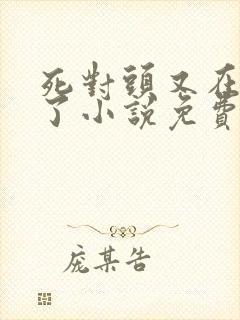 死對頭又在
了小説免費
庞某告